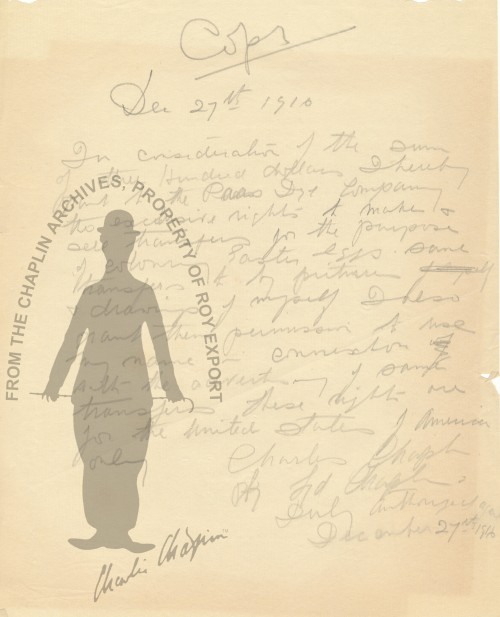 Copy
Dec 27th 1910
In consideration of the sum
of Hundred dollars I hereby
grant to the Paas Dye Company
the exclusive rights to make &
sell transfers for the purpose
of colouring Easter eggs. same
transfers to be pictures
& drawings of myself I also
grant them permission to use
my name in connexion
with the advertising of same
transfers these rights are
for the United States of America
only
Charles Chaplin
by Syd Chaplin
Duly authorized
December 27th
FROM THE CHAPLIN ARCHIVES, PROPERTY OF ROY EXPORT
Charlie Chaplin